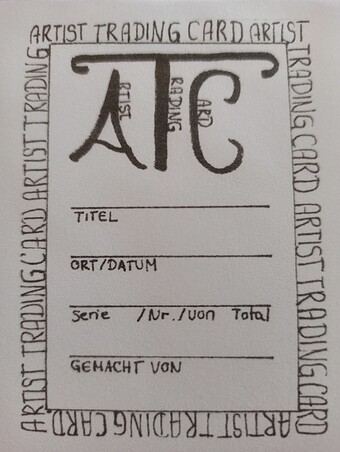 ARTIST TRADING CARD ARTIST
TRADING CARD ARTIST TRADING CARD
ARTIST TRADING CARD
ARTIST TRADING CARD ARTIST TRADING
ATC
ARTIST
TRADING
CARD
TITEL
ORT/DATUM
Serie /Nr./von Total
GEMACHT VON